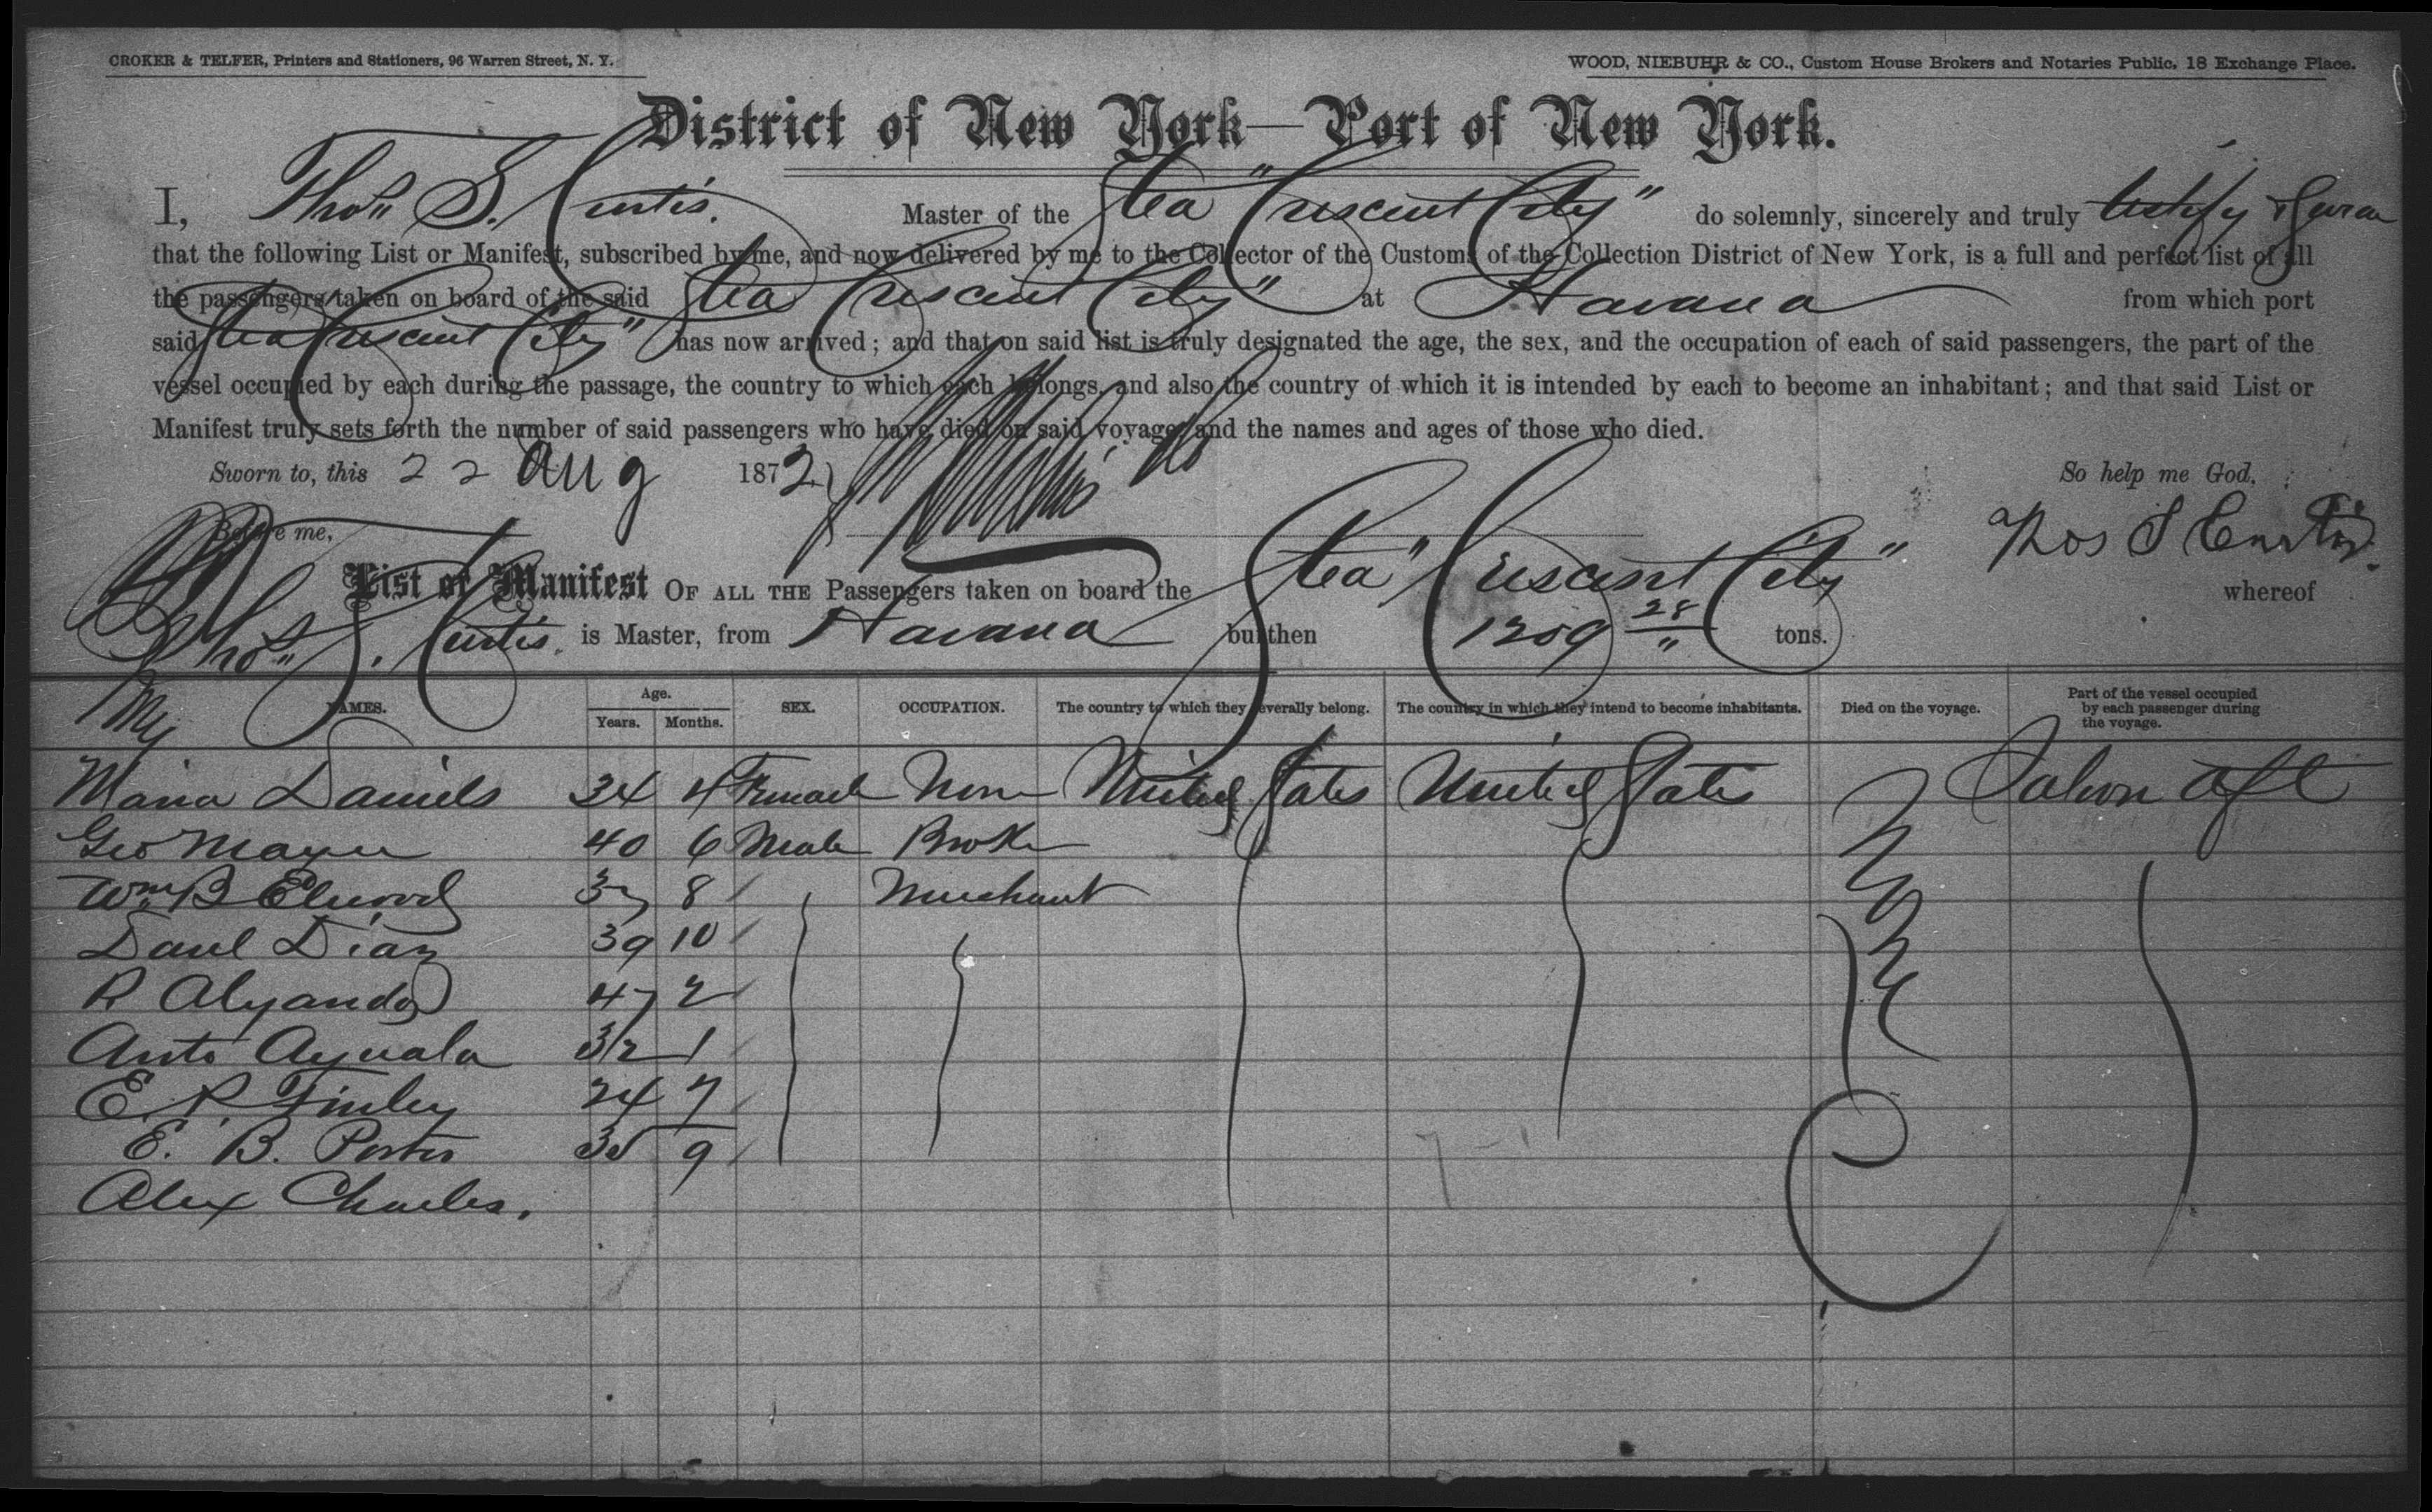 CROKER & TELFER, Printers and Stationers, 96 Warren Street, N. Y.
WOOD, NIEBUHR & CO., Custom House Brokers and Notaries Public, 18 Exchange Place.
District of New York—Port of New York.
I, Thos S. Curtis. Master of the Stea "Crescent City" do solemnly, sincerely and truly testify & swear
that the following List or Manifest, subscribed by me, and now delivered by me to the Collector of the Customs of the Collection District of New York, is a full and perfect list of all
the passengers taken on board of the said Stea Crescent City" at Havana from which port
said Stea Crescent City" has now arrived; and that on said list is truly designated the age, the sex, and the occupation of each of said passengers, the part of the
vessel occupied by each during the passage, the country to which each belongs, and also the country of which it is intended by each to become an inhabitant; and that said List or
Manifest truly sets forth the number of said passengers who have died on said voyage, and the names and ages of those who died.
Sworn to, this 22 Aug 1872 So help me God,
Before me, Thos S Curtis.
List or Manifest OF ALL THE Passengers taken on board the Stea "Crescent City" whereof
Thos S. Curtis. is Master, from Havana burthen 1209 28/" tons.
NAMES. Age. Years. Months. SEX. OCCUPATION. The country to which they severally belong. The country in which they intend to become inhabitants. Died on the voyage. Part of the vessel occupied by each passenger during the voyage.
Maria Daniels 34 4 Female None United States United States None Saloon aft
Geo Mayer 40 6 Male Broker
Wm B Elwood 37 8 Merchant
Danl Diaz 39 10
R 47 2
Anto 32 1
E. R. Finley 24 7
E. B. Porter 35 9
Alex Charles.